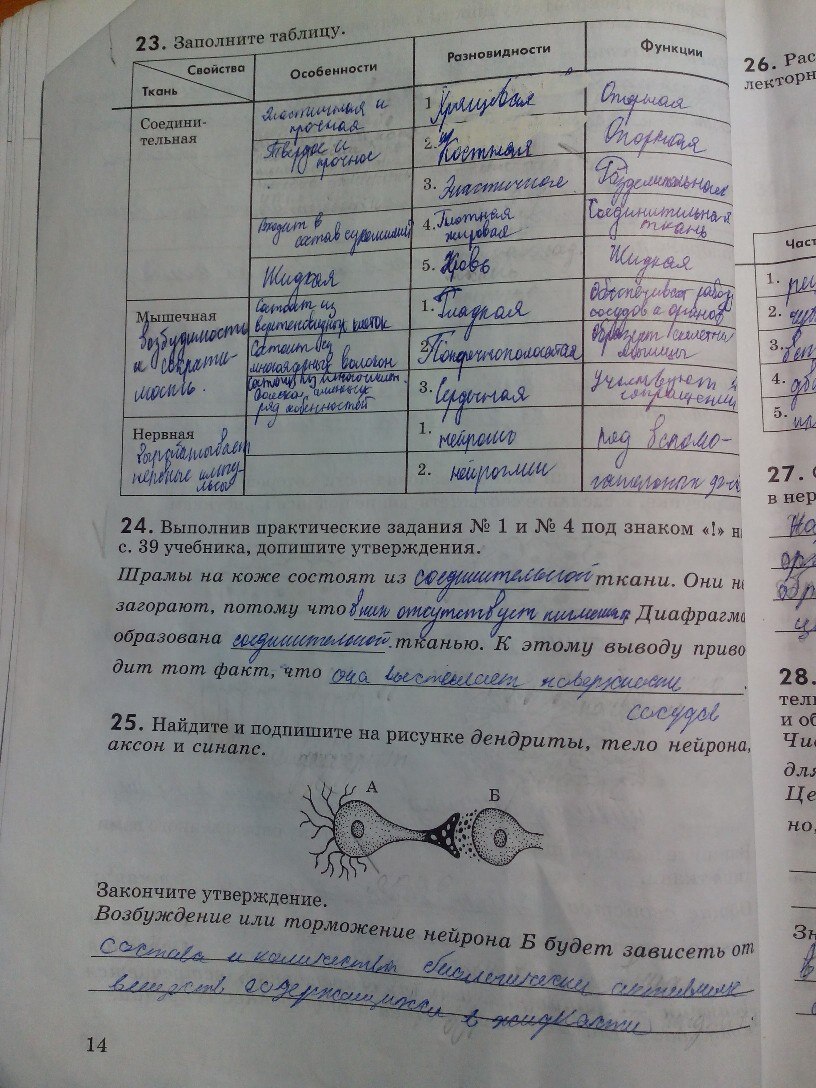 23. Заполните таблицу.
Свойства
Ткань
Особенности
Разновидности
Функции
Соедини-
тельная
Эластичная и
прочная
1. Хрящевая
Опорная
Твёрдое и
прочное
2. Костная
Опорная
3. Эластичное
Входит в
состав
4. Плотная
жировая
Соединительная
ткань
Жидкая
5. Кровь
Жидкая
Мышечная
возбудимость
и сократи-
мость.
Состоит из
веретеновидных клеток
1. Гладкая
Обеспечивает работу
сосудов и органов
Состоит из
многоядерных волокон
2. Поперечнополосатая
Образует скелетные
мышцы
3. Сердечная
Участвуют в
сокращении
Нервная
вырабатывает
нервные импу-
льсы
1. нейроны
ряд вспомо-
2. нейроглии
гательных
24. Выполнив практические задания № 1 и № 4 под знаком «!» н
с. 39 учебника, допишите утверждения.
Шрамы на коже состоят из соединительной ткани. Они не
загорают, потому что в них отсутствует пигмент. Диафрагма
образована соединительной тканью. К этому выводу приво
дит тот факт, что она выстилает поверхности
сосудов
25. Найдите и подпишите на рисунке дендриты, тело нейрона,
аксон и синапс.
А
Б
Закончите утверждение.
Возбуждение или торможение нейрона Б будет зависеть от
состава и количества биологически активных
веществ содержащихся в жидкости
14
26. Рас
лекторн
Част
1.
2.
3.
4.
5.
27.
в нер
28.
тель
и об
Чис
для
Це
но,
Зн